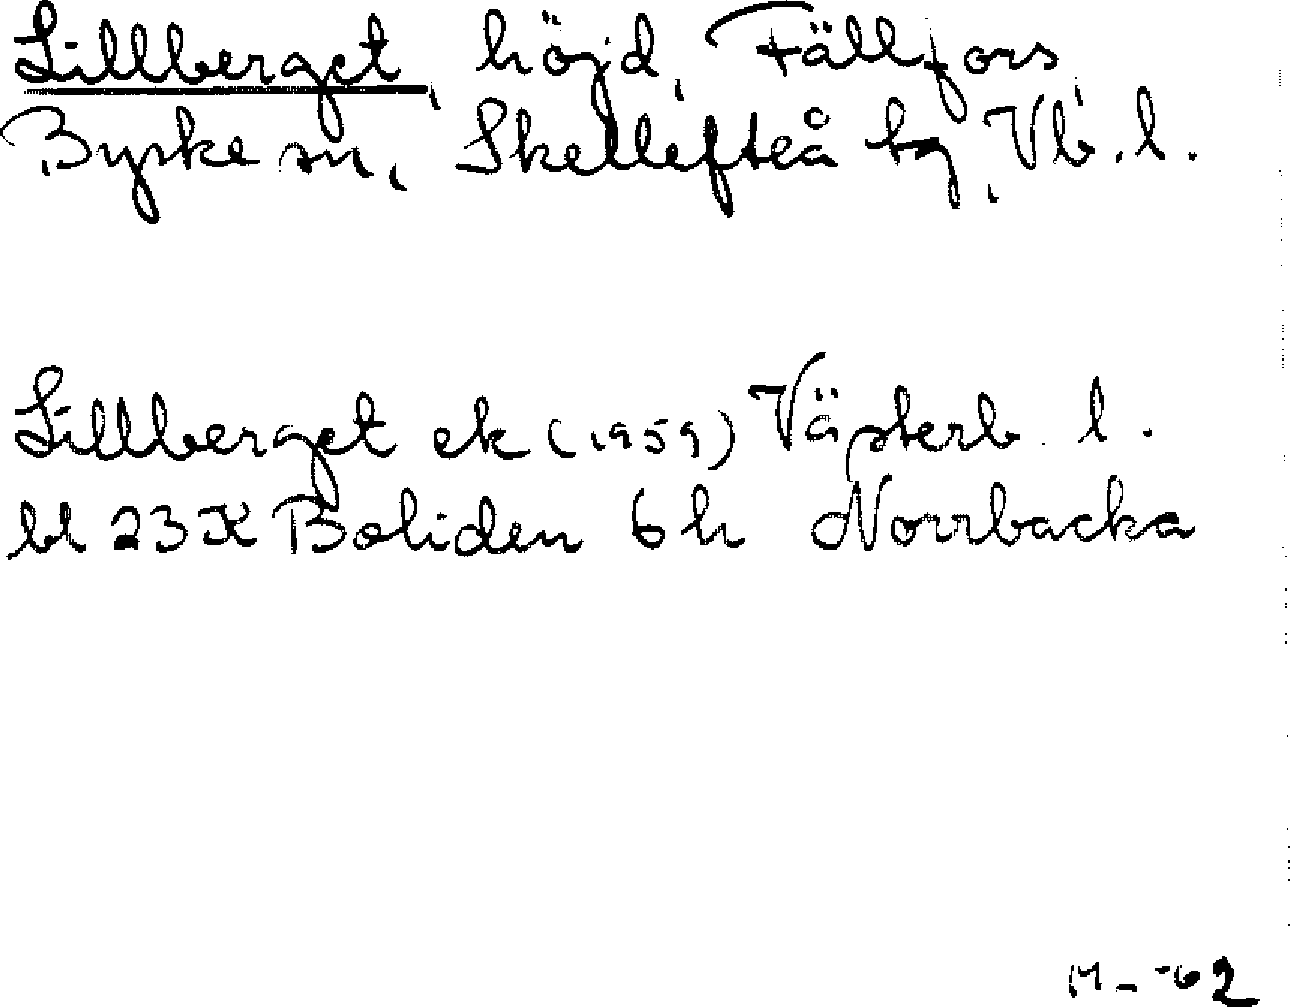 Lillberget, höjd, Fällfors,
Byske sn, Skellefteå tg, Vb. l.
Lillberget ek (1959) Västerb. l.
bl 23 K Boliden 6 h Norrbacka